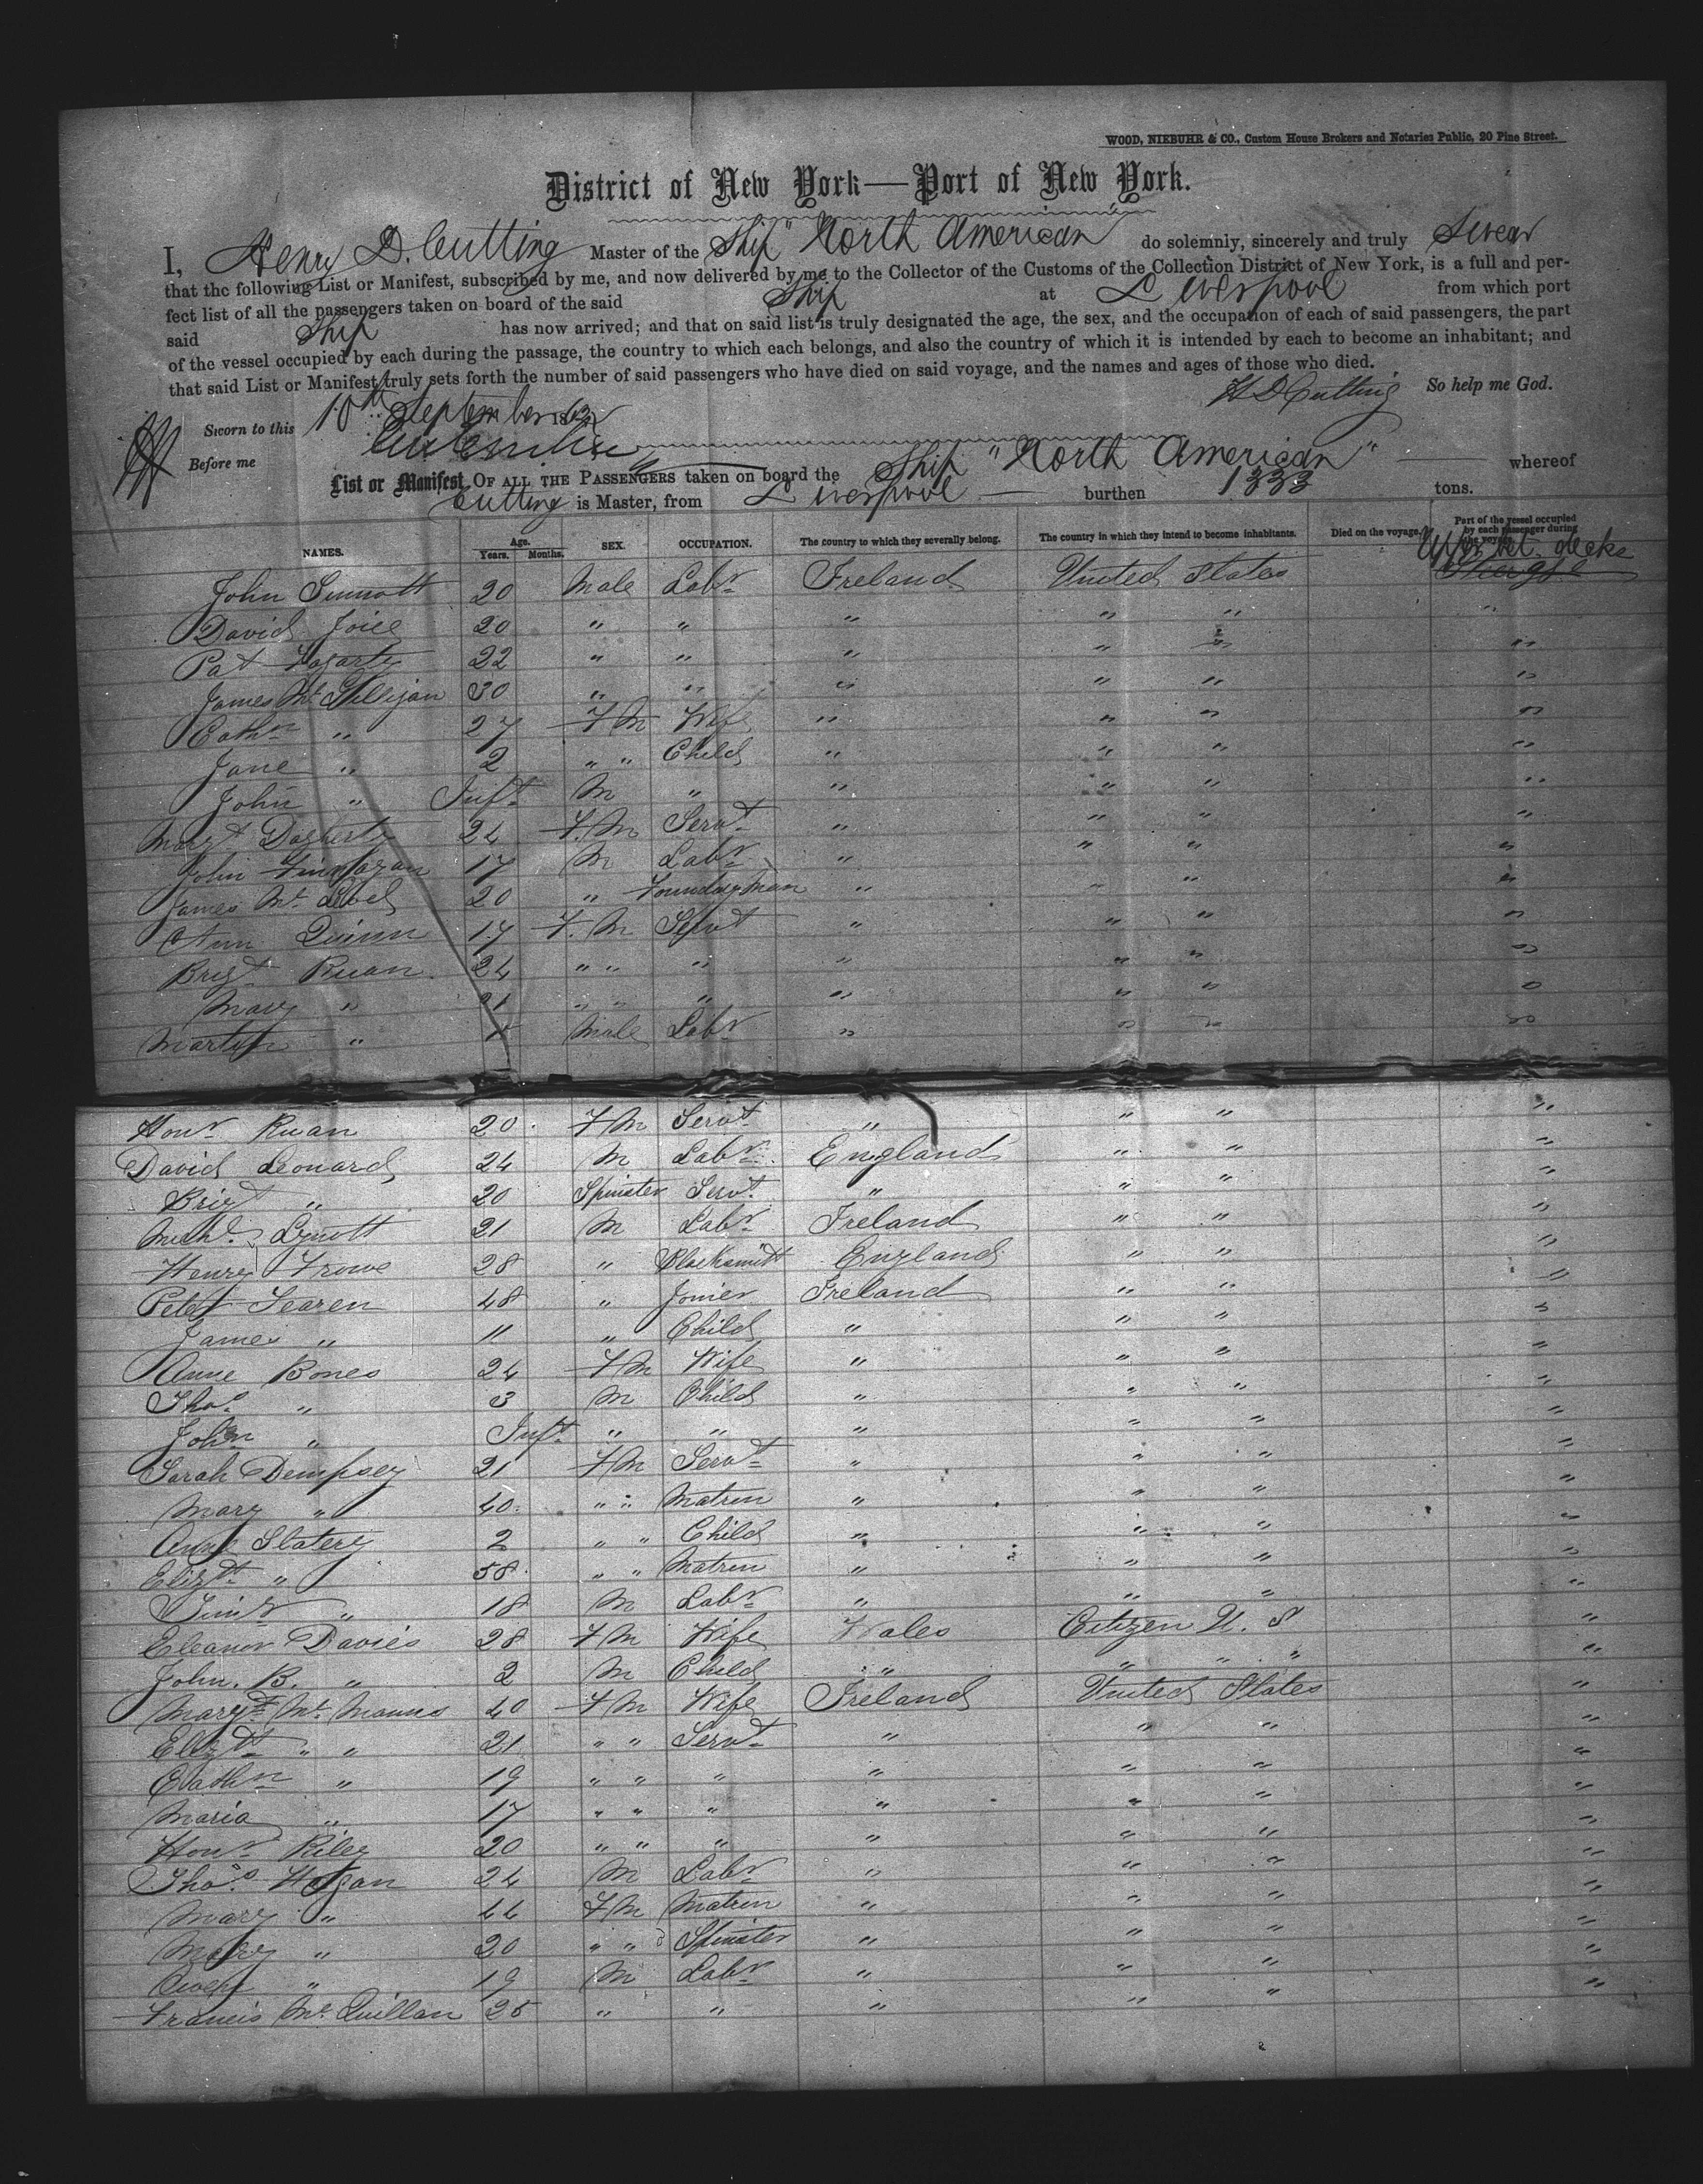 WOOD, NIEBUHR & CO., Custom House Brokers and Notaries Public, 20 Pine Street.
District of New York—Port of New York.
I, Henry D. Cutting Master of the Ship "North American" do solemnly, sincerely and truly Swear
that the following List or Manifest, subscribed by me, and now delivered by me to the Collector of the Customs of the Collection District of New York, is a full and per-
fect list of all the passengers taken on board of the said Ship at Liverpool from which port
said Ship has now arrived; and that on said list is truly designated the age, the sex, and the occupation of each of said passengers, the part
of the vessel occupied by each during the passage, the country to which each belongs, and also the country of which it is intended by each to become an inhabitant; and
that said List or Manifest truly sets forth the number of said passengers who have died on said voyage, and the names and ages of those who died.
H D Cutting So help me God.
Sworn to this 10th September 186
Before me
List or Manifest OF ALL THE PASSENGERS taken on board the Ship "North American" whereof
Cutting is Master, from Liverpool burthen 1333 tons.
NAMES. Age. Years. Months. SEX. OCCUPATION. The country to which they severally belong. The country in which they intend to become inhabitants. Died on the voyage. Part of the vessel occupied by each passenger during the voyage.
Upr bet. decks
John Sinnott 20 Male Labr Ireland United States Steerage
David Joice 20 " " " " " "
Pat Fogarty 22 " " " " " "
James Mc Gilligan 30 " " " " " "
Cathn " 27 F M Wife " " " "
Jane " 2 " " Child " " " "
John " Inft M " " " " "
Margt Dogherty 24 F. M Servt " " " "
John Finnagan 17 M Labr " " " "
James Mc 20 " Foundryman " " " "
Ann Quinn 17 F. M Servt " " " "
Brigt Ruan 24 " " " " " " "
Mary " 21 " " " " " " "
Martin " Male Labr " " " "
Honr Ruan 20 F M Servt " " " "
David Leonard 24 M Labr England " " "
Brigt " 20 Spinster Servt " " " "
Michl Lynott 21 M Labr Ireland " " "
Henry Frowe 28 " Blacksmith England " " "
Peter Searen 48 " Joiner Ireland " " "
James " 11 " Child " " " "
Anne Bones 24 F M Wife " " " "
Thos " 3 M Child " " " "
John " Inft " " " " " "
Sarah Dempsey 21 F M Servt " " " "
Mary " 40 " " Matrin " " " "
Anne Slatery 2 " " Child " " " "
Elizth " 58 " " Matrin " " " "
Timy " 18 M Labr " " " "
Eleanor Davies 28 F M Wife Wales Citizen U. S "
John. B. " 2 M Child " " " " "
Margt Mc Manus 40 F M Wife Ireland United States "
Elizth " " 21 " " Servt " " " "
Cathn " 19 " " " " " " "
Maria " 17 " " " " " " "
Honr Riley 20 " " " " " " "
Thos Hogan 24 M Labr " " " "
Mary " 44 F M Matrin " " " "
Mary " 20 " " Spinster " " " "
Owen " 19 M Labr " " " "
Francis Mc Quillan 25 " " " " " "